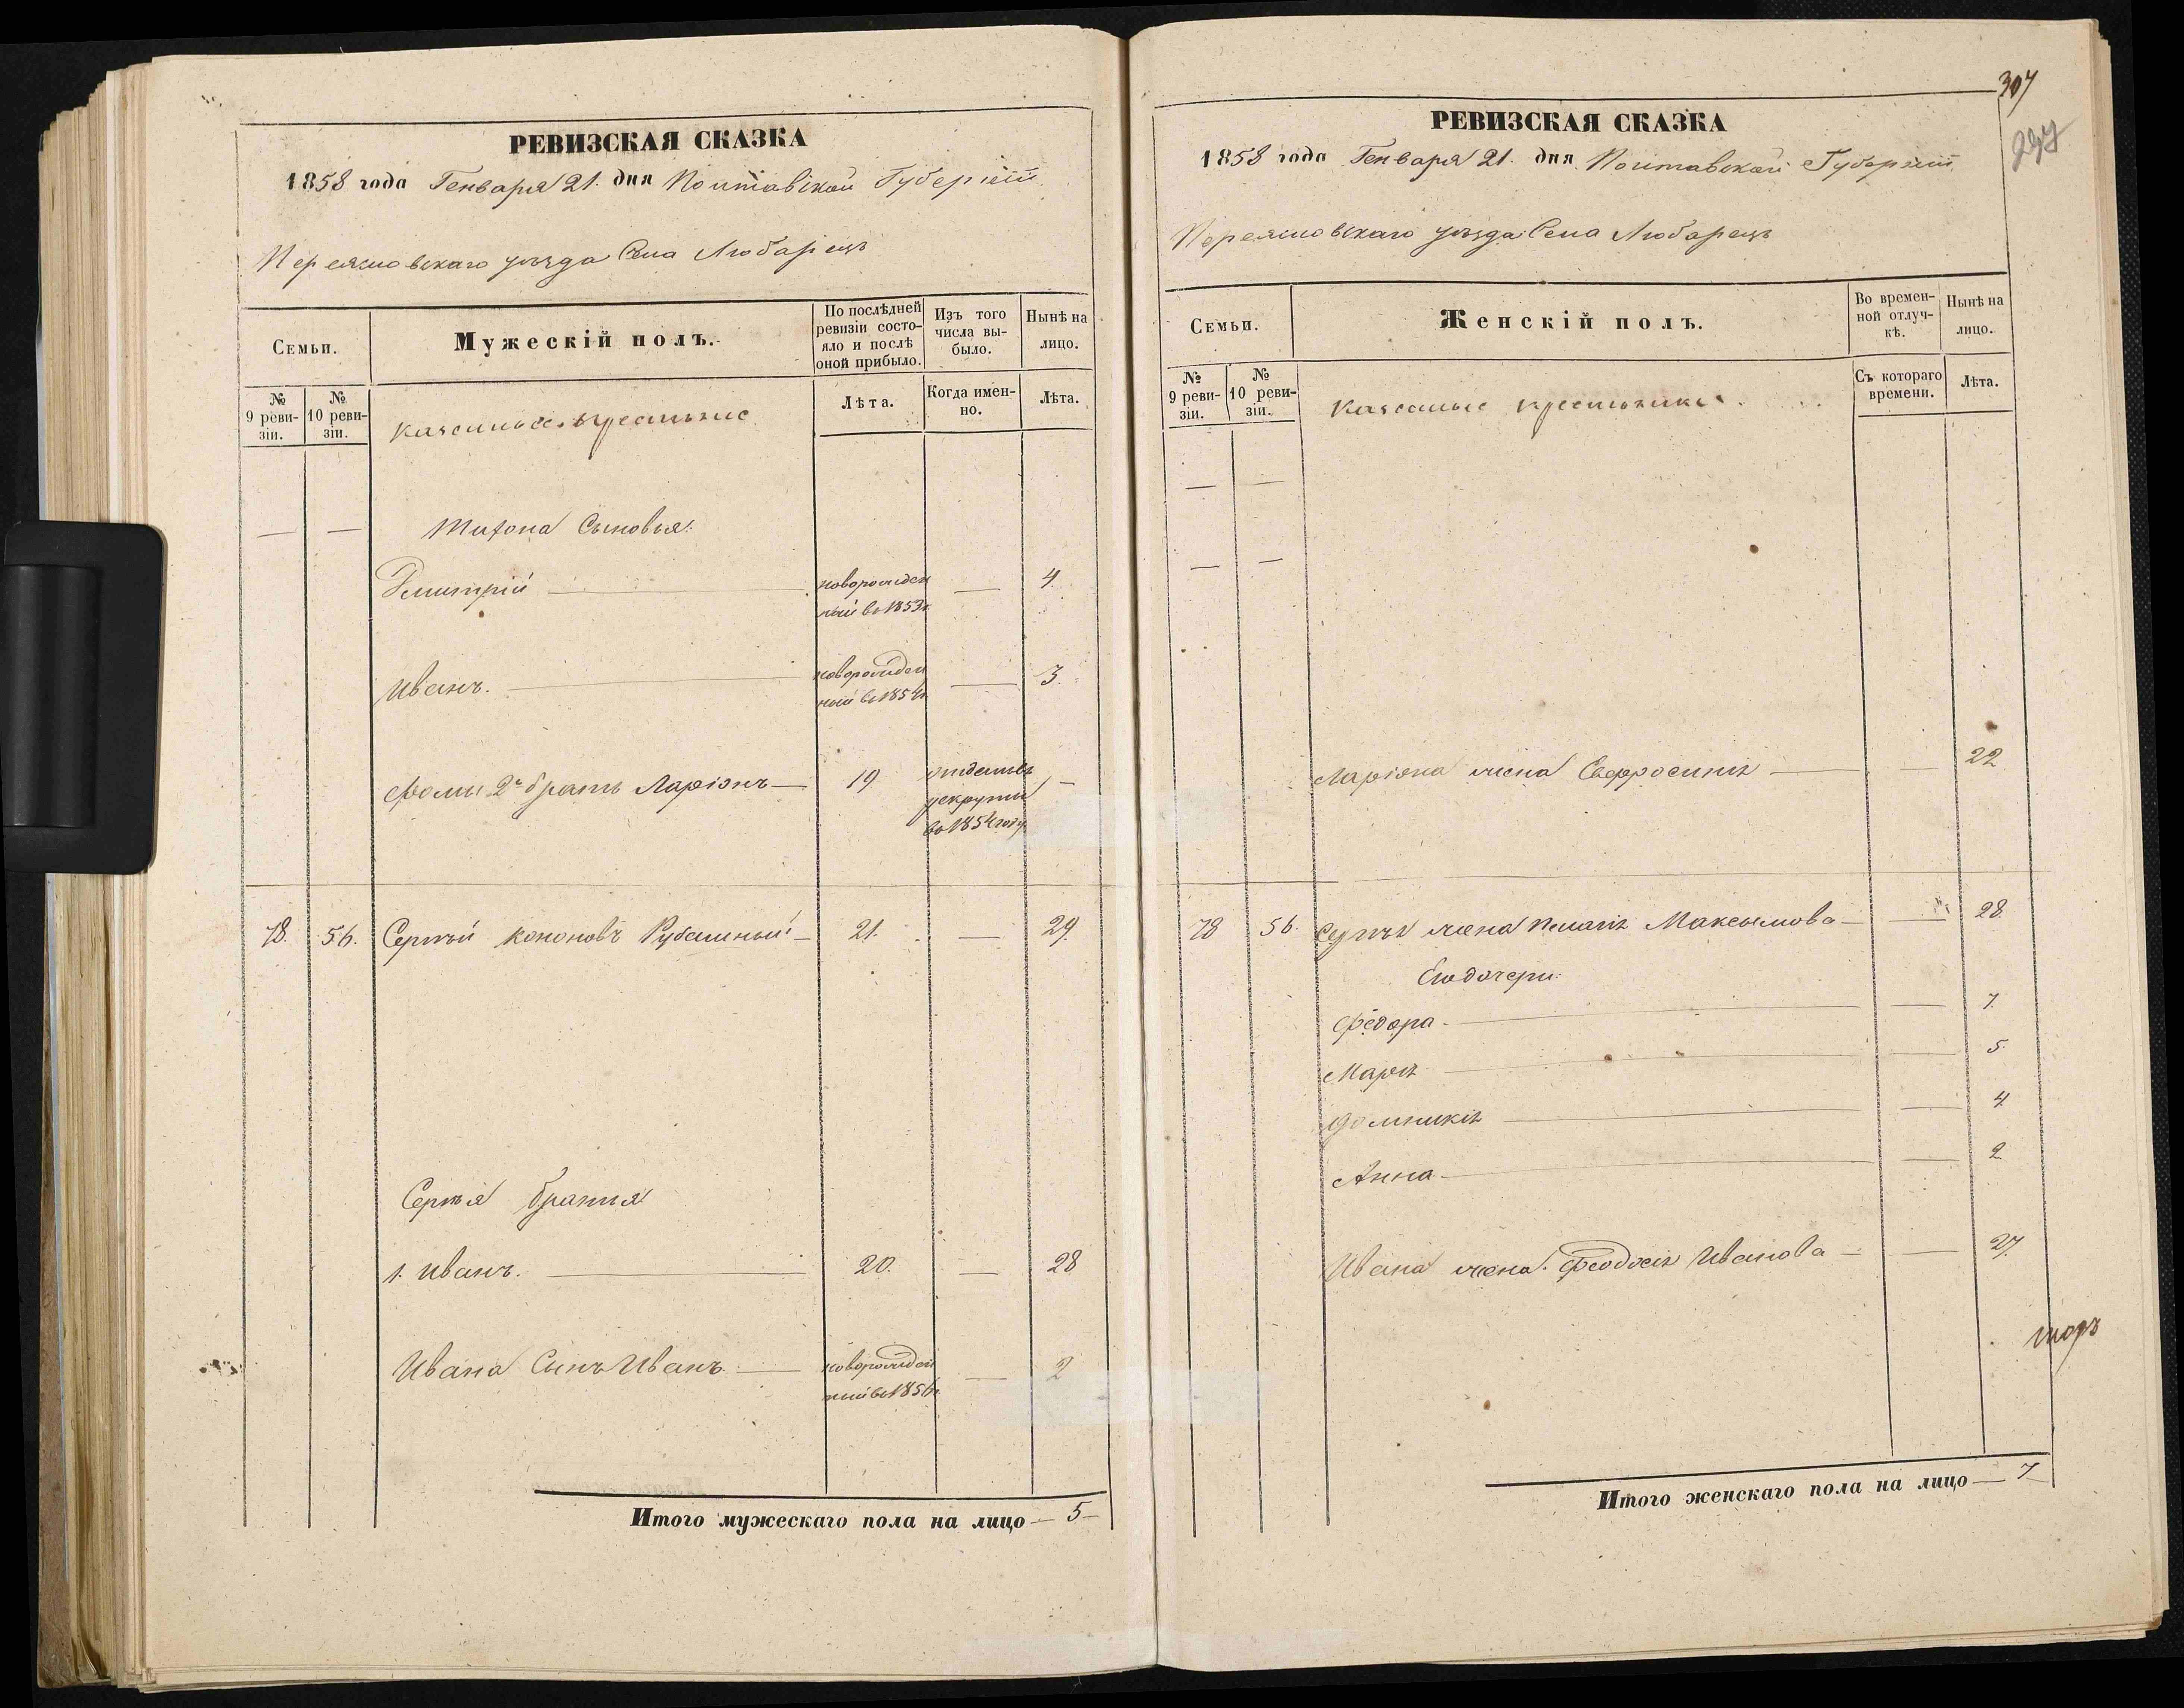 РЕВИЗСКАЯ СКАЗКА
1858 года Генваря 21. дня Полтавской Губерніи
Переяславскаго уѣзда Села Любарецъ
Семьи.
Мужескій полъ.
По послѣдней ревизіи состояло и послѣ оной прибыло.
Изъ того числа выбыло.
Нынѣ на лицо.
№ 9 ревизіи.
№ 10 ревизіи.
казенные крестьяне
Лѣта.
Когда именно.
Лѣта.
— — Тихона Сыновья:
Дмитрій — новорожден — 4.
ный въ 1853г.
Иванъ. — новорожден — 3.
ный въ 1854г.
Фомы 2й братъ Ларіонъ — 19 отданъ въ —
рекруты
въ 1854 году
78. 56. Сергѣй Кононовъ Рубанный — 21. — 29.
Сергѣя братья
1. Иванъ. — 20. — 28
Ивана Сынъ Иванъ — новорожден — 2
ный въ 1856г.
Итого мужескаго пола на лицо — 5 —
307
297
РЕВИЗСКАЯ СКАЗКА
1858 года Генваря 21. дня Полтавской Губерніи
Переяславскаго уѣзда Села Любарецъ
Семьи.
Женскій полъ.
Во временной отлучкѣ.
Нынѣ на лицо.
№ 9 ревизіи.
№ 10 ревизіи.
казенные крестьянки
Съ котораго времени.
Лѣта.
— —
— —
Ларіона жена Евфросинія — — 22
78 56. Сергѣя жена Пелагія Максимова — — 28.
Его дочери:
Федора — — 7.
Марія — — 5.
Домникія — — 4
Анна — — 2
Ивана жена Феодосія Иванова — — 27.
Итого женскаго пола на лицо — 7